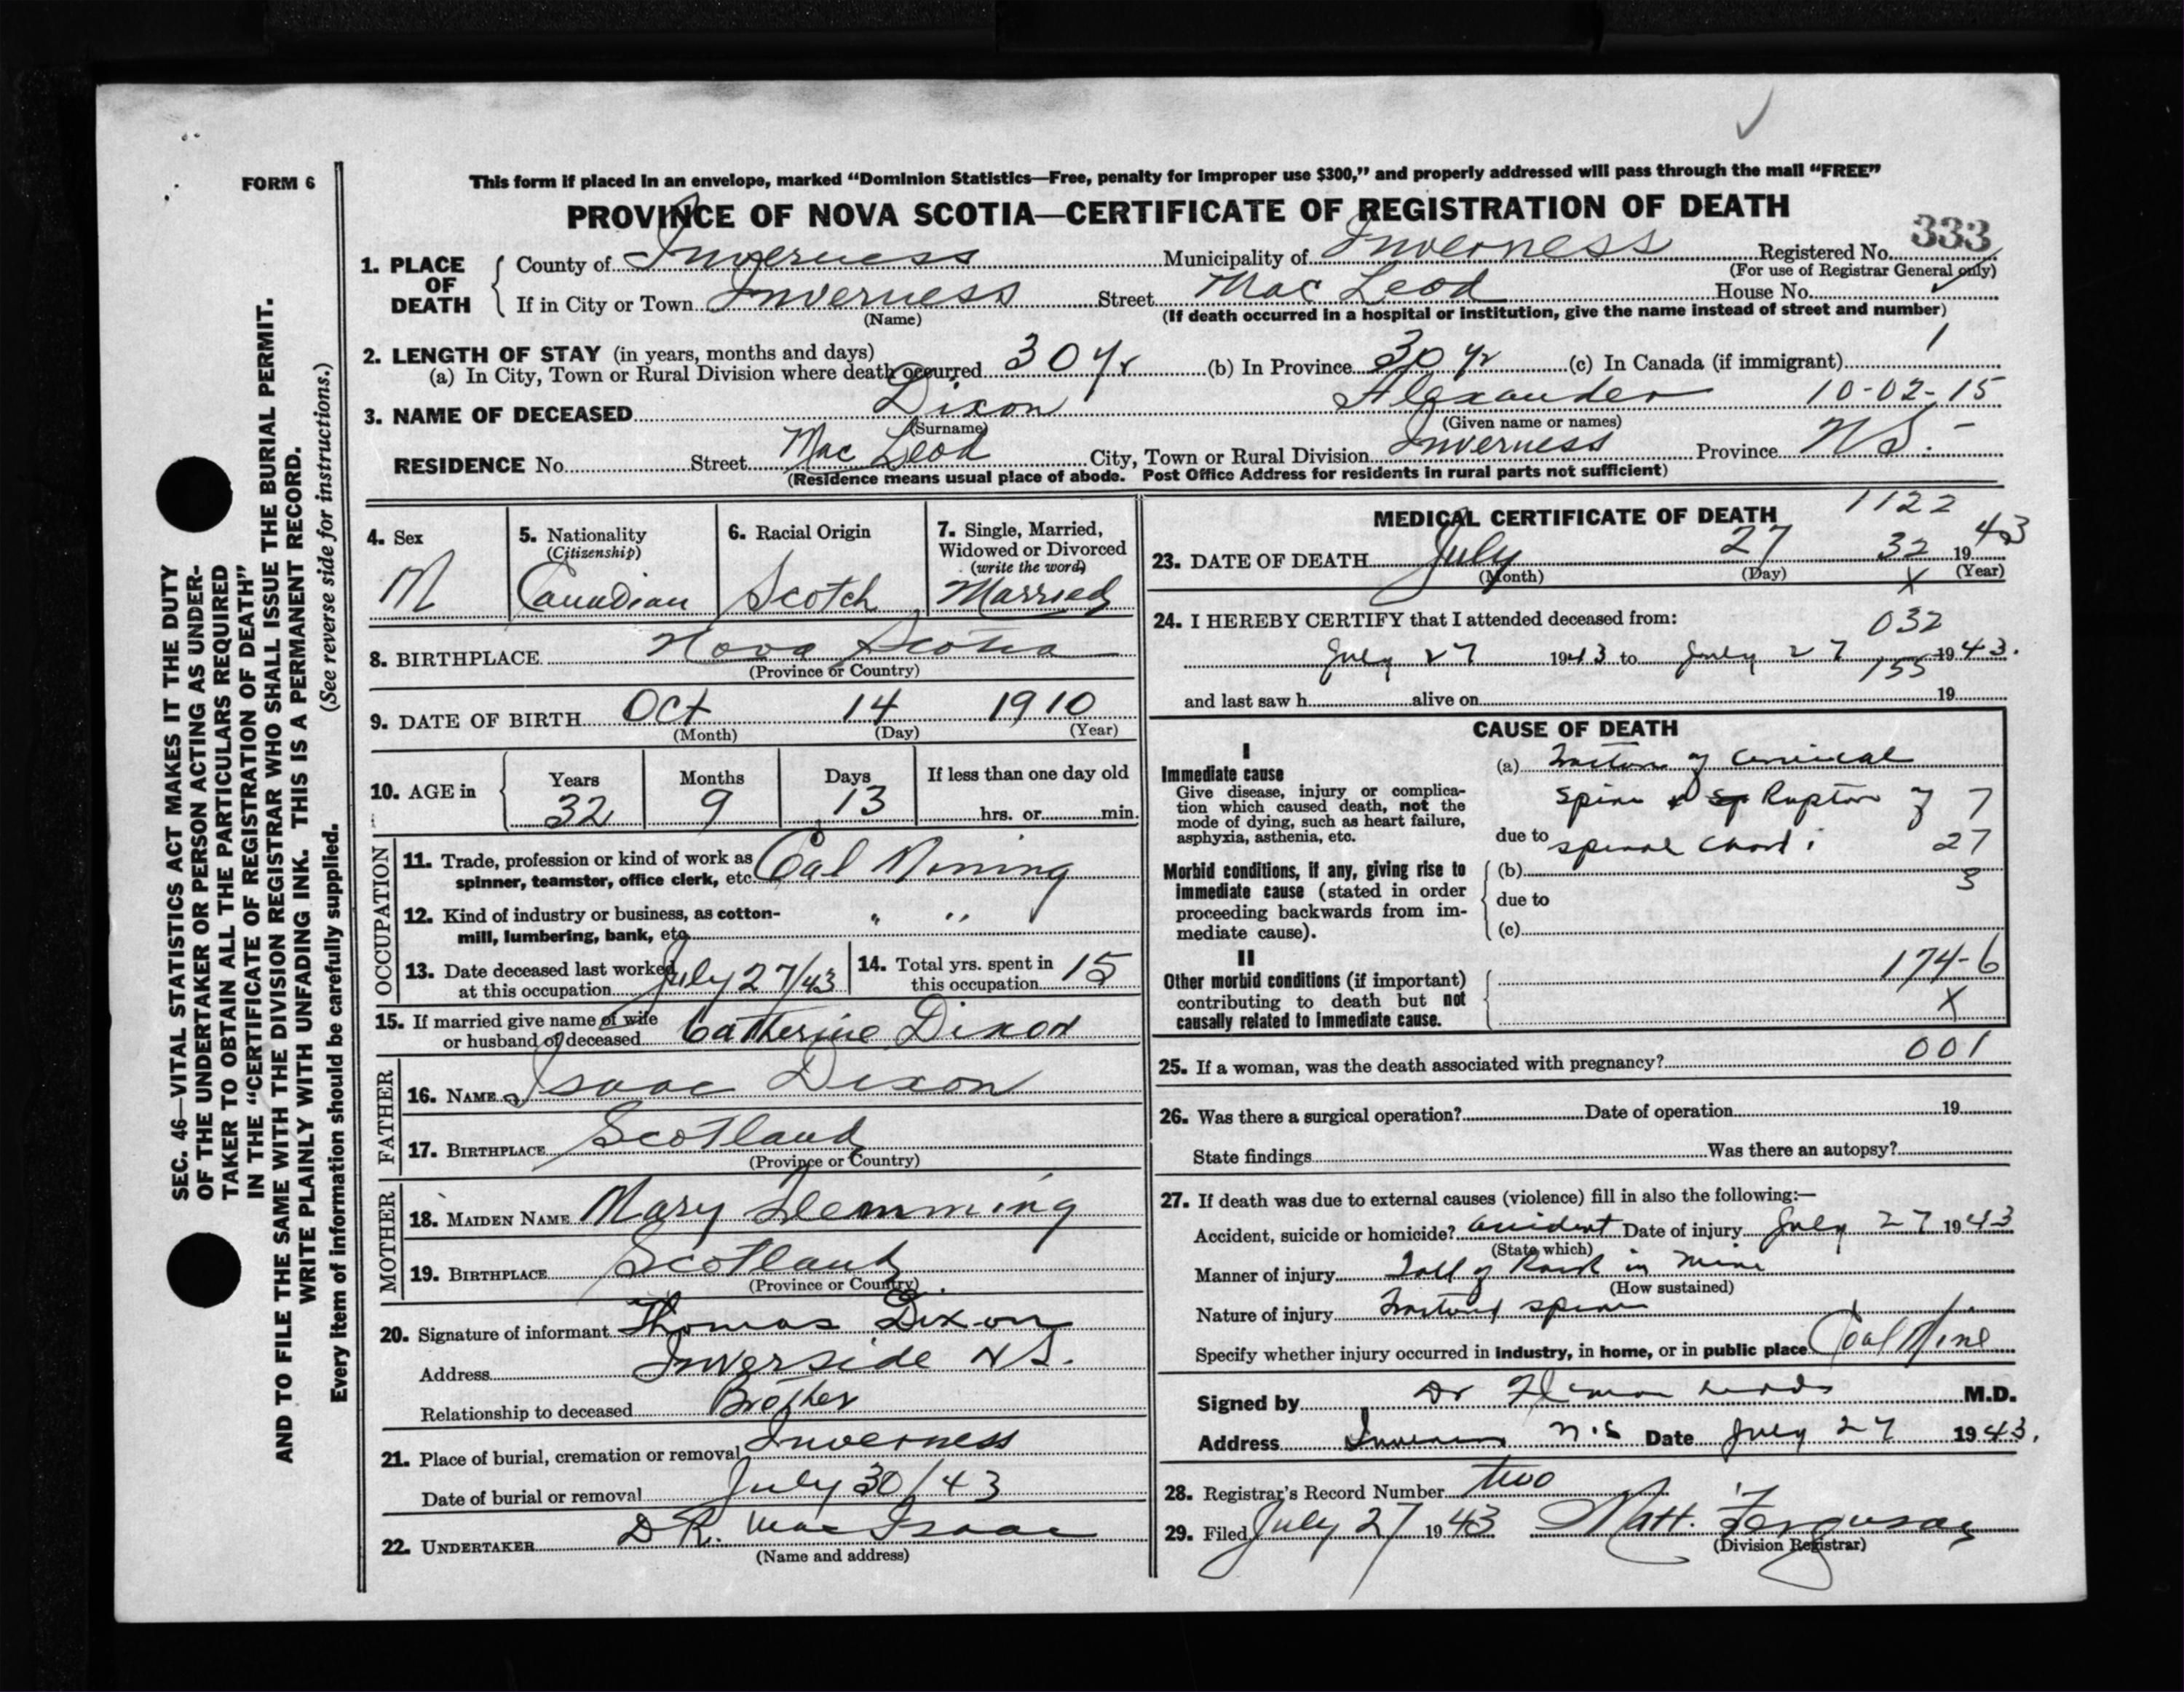 FORM 6
This form if placed in an envelope, marked “Dominion Statistics—Free, penalty for improper use $300,” and properly addressed will pass through the mail “FREE”
PROVINCE OF NOVA SCOTIA—CERTIFICATE OF REGISTRATION OF DEATH
333
1. PLACE OF DEATH { County of Inverness Municipality of Inverness Registered No.
(For use of Registrar General only)
If in City or Town Inverness Street Mac Leod House No.
(Name) (If death occurred in a hospital or institution, give the name instead of street and number)
2. LENGTH OF STAY (in years, months and days)
(a) In City, Town or Rural Division where death occurred 30 yr (b) In Province 30 yr (c) In Canada (if immigrant) 1
3. NAME OF DECEASED Dixon Alexander 10-02-15
(Surname) (Given name or names)
RESIDENCE No. Street Mac Leod City, Town or Rural Division Inverness Province N.S. -
(Residence means usual place of abode. Post Office Address for residents in rural parts not sufficient)
4. Sex M
5. Nationality (Citizenship) Canadian
6. Racial Origin Scotch
7. Single, Married, Widowed or Divorced (write the word) Married
8. BIRTHPLACE Nova Scotia
(Province or Country)
9. DATE OF BIRTH Oct 14 1910
(Month) (Day) (Year)
10. AGE in { Years Months Days If less than one day old
32 9 13 hrs. or min.
OCCUPATION
11. Trade, profession or kind of work as spinner, teamster, office clerk, etc. Coal Mining
12. Kind of industry or business, as cotton-mill, lumbering, bank, etc. " "
13. Date deceased last worked at this occupation July 27/43
14. Total yrs. spent in this occupation 15
15. If married give name of wife or husband of deceased Catherine Dixon
FATHER
16. NAME Isaac Dixon
17. BIRTHPLACE Scotland
(Province or Country)
MOTHER
18. MAIDEN NAME Mary Flemming
19. BIRTHPLACE Scotland
(Province or Country)
20. Signature of informant Thomas Dixon
Address Inverside N S.
Relationship to deceased Brother
21. Place of burial, cremation or removal Inverness
Date of burial or removal July 30/43
22. UNDERTAKER D.R. MacIsaac
(Name and address)
MEDICAL CERTIFICATE OF DEATH 1122
23. DATE OF DEATH July 27 32 1943
(Month) (Day) X (Year)
24. I HEREBY CERTIFY that I attended deceased from:
032
July 27 1943 to July 27 1943.
155
and last saw h alive on 19
CAUSE OF DEATH
I
Immediate cause
Give disease, injury or complication which caused death, not the mode of dying, such as heart failure, asphyxia, asthenia, etc.
(a) Fracture of Cervical
Spine & Rupture of 7
due to spinal chord 27
Morbid conditions, if any, giving rise to immediate cause (stated in order proceeding backwards from immediate cause).
(b) 3
due to
(c)
II
Other morbid conditions (if important) contributing to death but not causally related to immediate cause.
174-6
X
25. If a woman, was the death associated with pregnancy? 001
26. Was there a surgical operation? Date of operation 19
State findings Was there an autopsy?
27. If death was due to external causes (violence) fill in also the following:—
Accident, suicide or homicide? accident Date of injury July 27 1943
(State which)
Manner of injury Fall of Rock in Mine
(How sustained)
Nature of injury Fractured spine
Specify whether injury occurred in industry, in home, or in public place Coal Mine
Signed by Dr M.D.
Address Inverness N.S Date July 27 1943.
28. Registrar’s Record Number two
29. Filed July 27 1943 Matt. Ferguson
(Division Registrar)
SEC. 46—VITAL STATISTICS ACT MAKES IT THE DUTY
OF THE UNDERTAKER OR PERSON ACTING AS UNDER-
TAKER TO OBTAIN ALL THE PARTICULARS REQUIRED
IN THE “CERTIFICATE OF REGISTRATION OF DEATH”
AND TO FILE THE SAME WITH THE DIVISION REGISTRAR WHO SHALL ISSUE THE BURIAL PERMIT.
WRITE PLAINLY WITH UNFADING INK. THIS IS A PERMANENT RECORD.
Every item of information should be carefully supplied. (See reverse side for instructions.)